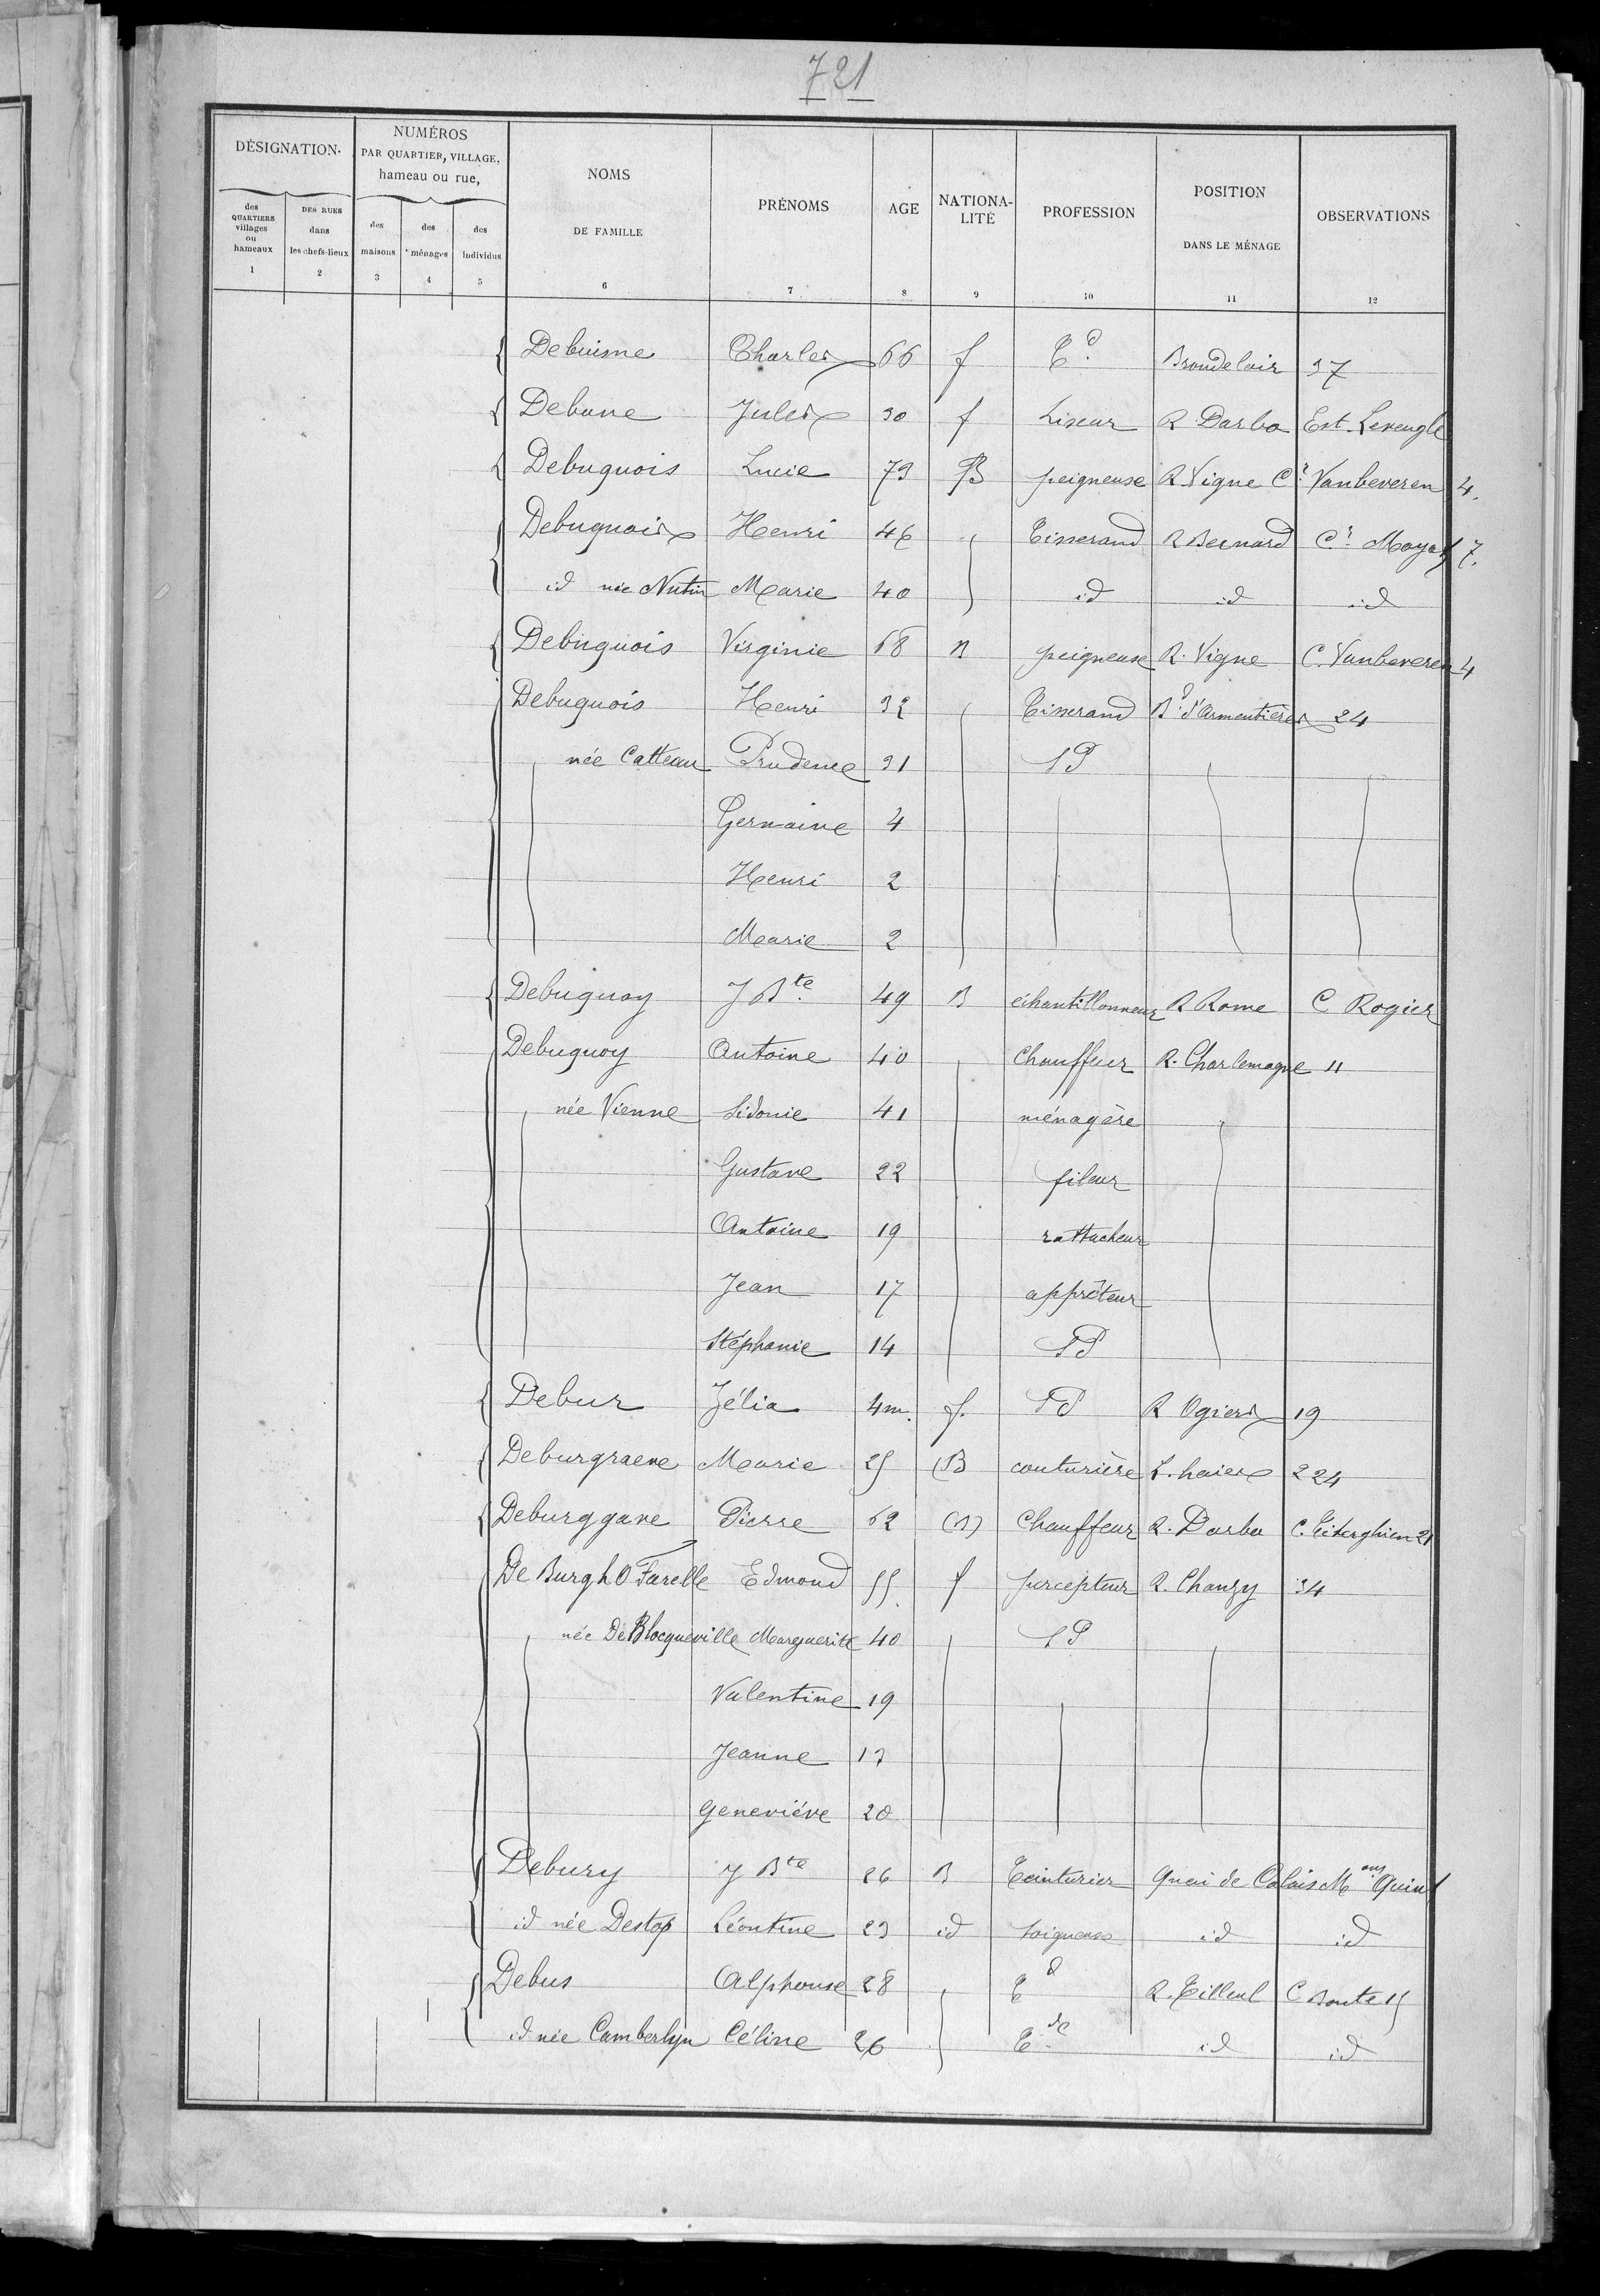 721
DÉSIGNATION. NUMÉROS PAR QUARTIER, VILLAGE, hameau ou rue, NOMS DE FAMILLE PRÉNOMS AGE NATIONALITÉ PROFESSION POSITION DANS LE MÉNAGE OBSERVATIONS
des QUARTIERS villages ou hameaux DES RUES dans les chefs-lieux des maisons des ménages des individus
1 2 3 4 5 6 7 8 9 10 11 12
Debuisme Charles 66 f Td Brondeloir 37
Debune Jules 30 f Liseur R Darbo Est. Leveugle
Debuquois Lucie 73 B peigneuse R. Vigne Cr Vanbeveren 4.
Debuquois Henri 46 Tisserand R Bernard Cr 7.
id née Nutin Marie 40 id id id
Debuquois Virginie 68 B peigneuse R. Vigne C. Vanbeveren 4
Debuquois Henri 32 Tisserand Bd d'Armentières 24
née Catteau Prudence 31 SP
Germaine 4
Henri 2
Marie 2
Debuquoy J Bte 49 B échantillonneur R Rome C Rogier
Debuquoy Antoine 40 Chauffeur R. Charlemagne 11
née Vienne Sidonie 41 ménagère
Gustave 22 fileur
Antoine 19 rattacheur
Jean 17 apprêteur
Stéphanie 14 SP
Debur Zélia 4m. f. SP R Ogiers 19
Deburgraeve Marie 25 (B couturière L. haies 224
Deburggave Pierre 62 (B) Chauffeur R. Darbo C. Titerghien 21
De Burgh O Farelle Edmond 55. f percepteur R. Chanzy 34
née De Blocqueville Marguerite 40 SP
Valentine 19
Jeanne 13
Geneviève 20
Debury J Bte 26 B Teinturier Quai de Calais Mons Quint
id née Destop Léontine 23 id soigneuse id id
Debus Alphonse 28 Td R. Tilleul C Bonte 15
id née Camberlyn Céline 26 Tde id id